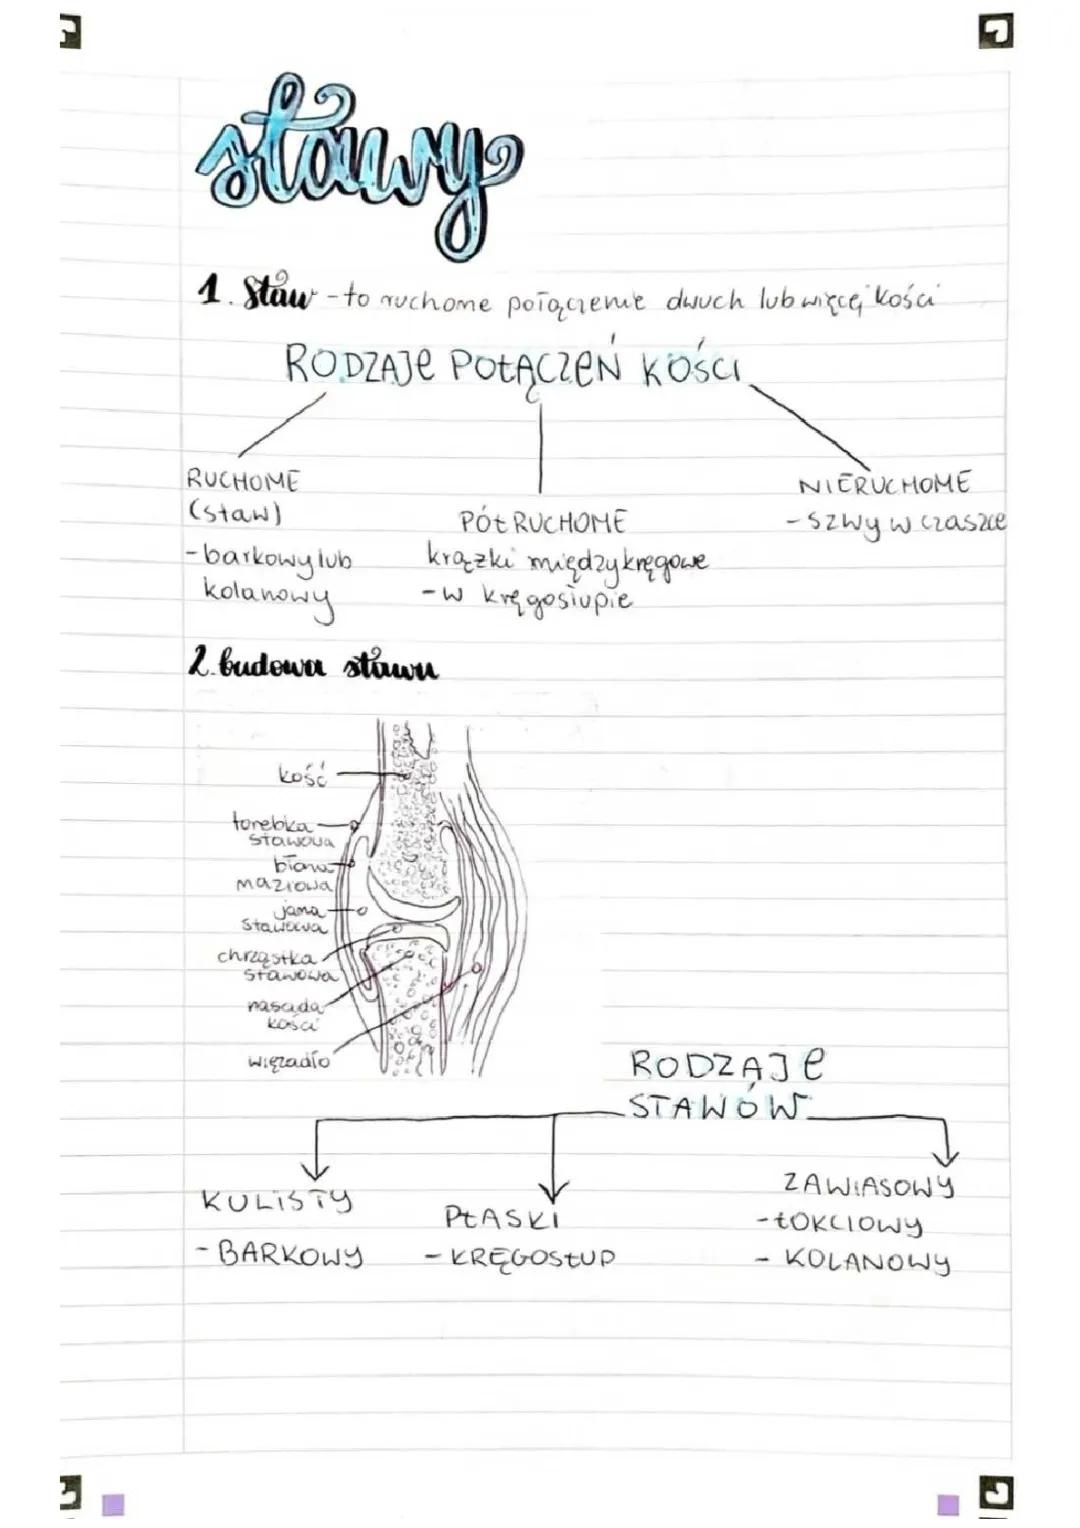 stawy
1. Staw - to ruchome połączenie dwuch lub więcej kości
RODZAJE POŁĄCZEŃ KOŚCI
RUCHOME
(staw)
- barkowy lub
kolanowy
PÓŁRUCHOME
krążki międzykręgowe
- w kręgosłupie
NIERUCHOME
- szwy w czaszce
2. budowa stawu
kość
torebka
stawowa
błona
maziowa
jama
stawowa
chrząstka
stawowa
nasada
kości
więzadło
RODZAJE
STAWÓW
KULISTY
- BARKOWY
PŁASKI
- KRĘGOSŁUP
ZAWIASOWY
- ŁOKCIOWY
- KOLANOWY